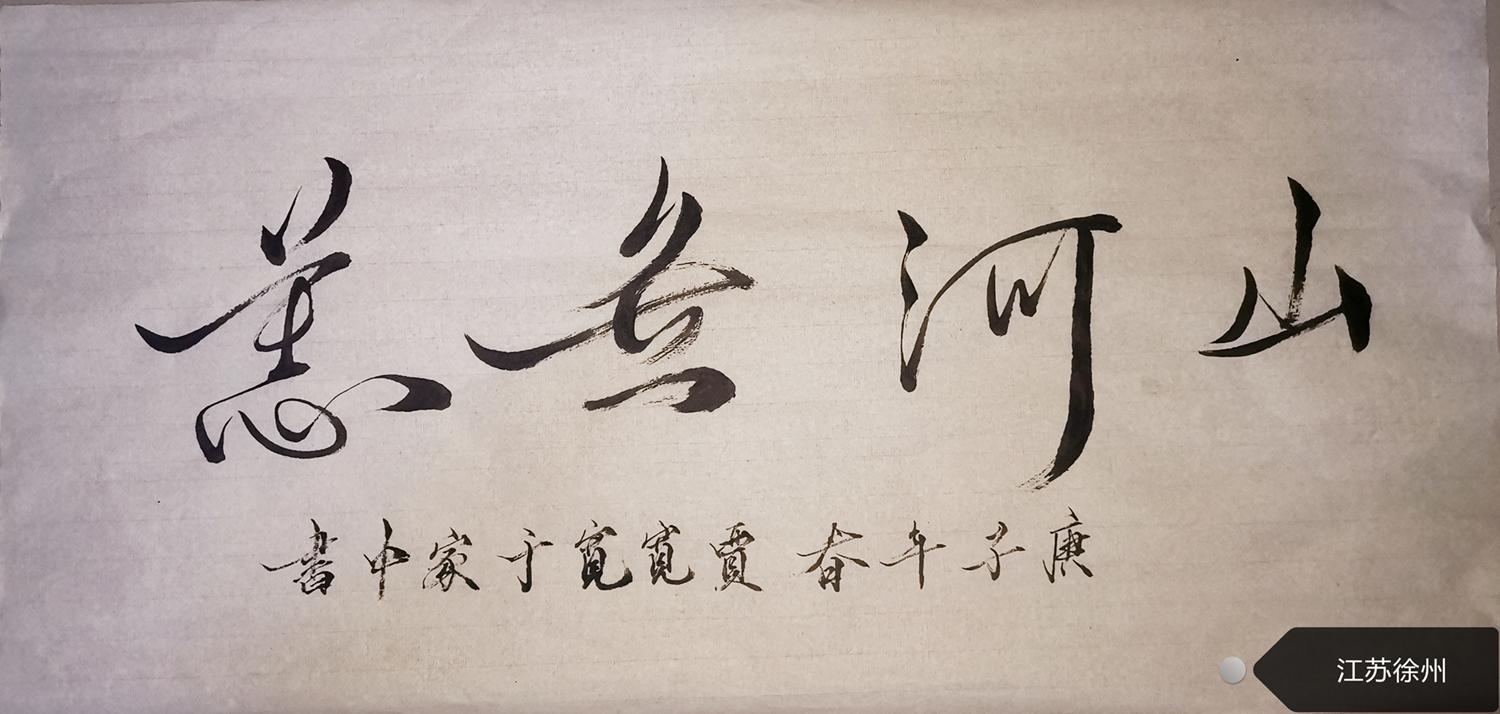 山河無恙
庚子年春 賈寬寬于家中書
江苏徐州